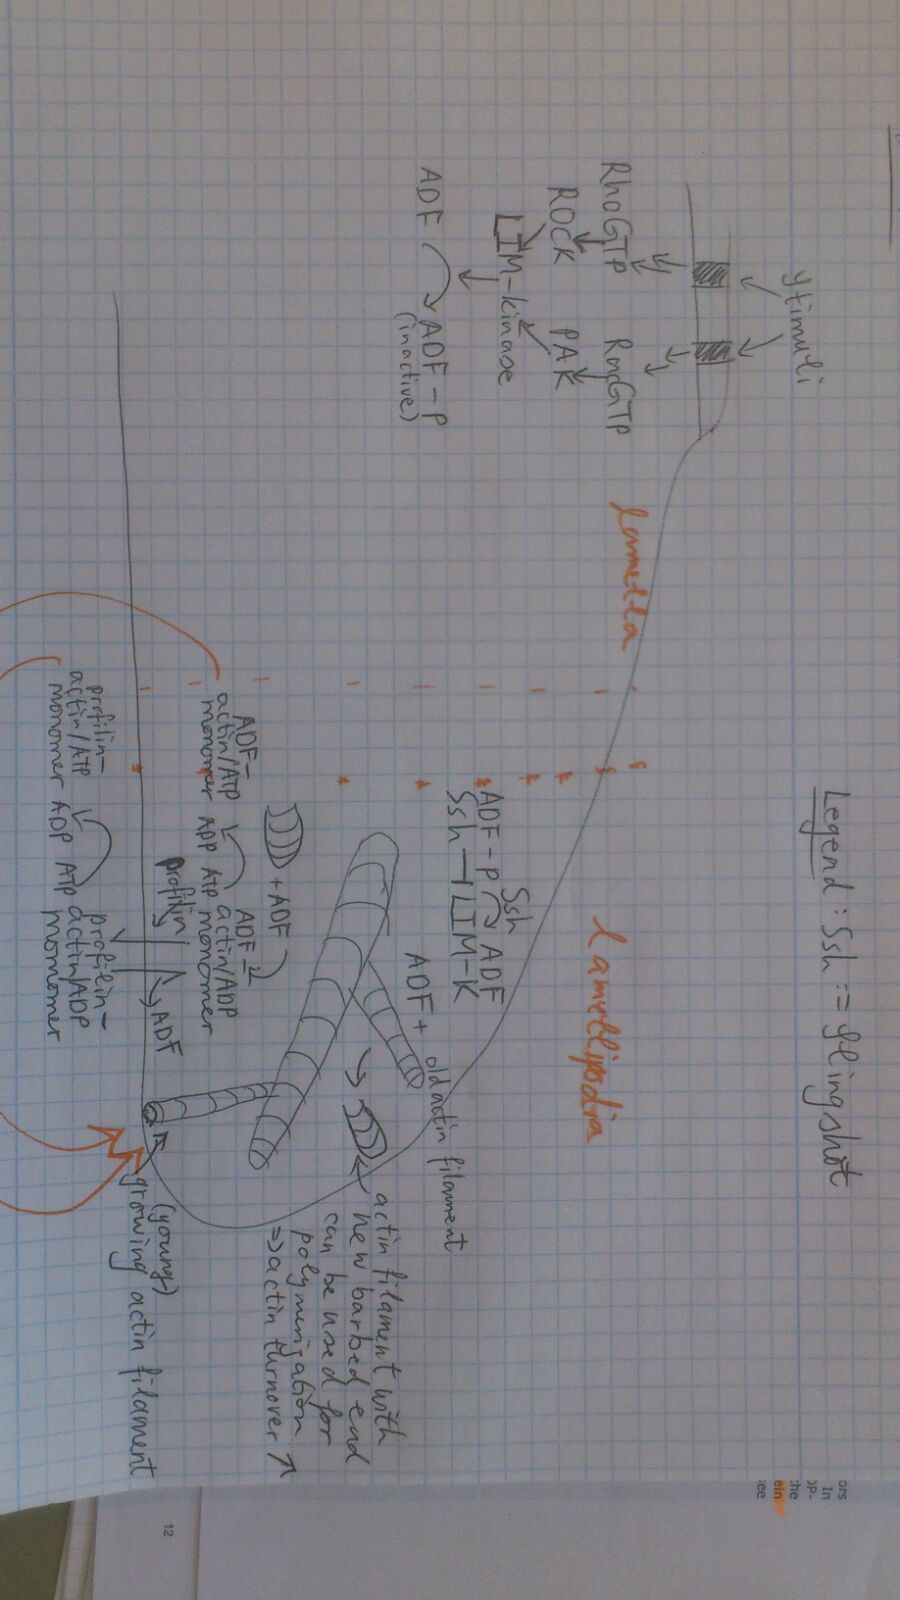 Legend: Ssh := Slingshot
stimuli
RhoGTP RacGTP
ROCK PAK
LIM-kinase
ADF ADF-P
(inactive)
Lamella
Lamellipodia
Ssh
ADF-P ADF
Ssh LIM-K
ADF + old actin filament
actin filament with
new barbed end
can be used for
polymerization
=> actin turnover ↗
+ ADF
ADF-
actin/ATP
monomer
ADP ATP
ADF-
actin/ADP
monomer
profilin
ADF
(young)
growing actin filament
profilin-
actin/ATP
monomer
ADP ATP
profilin-
actin/ADP
momomer
ors
In
DP-
the
ein
see
12